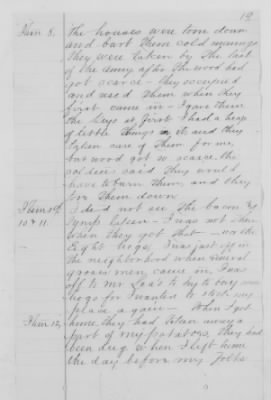 19
Item 8. The houses were torn down
and burt them cold mornings
they were taken by the last
of the army after the wood had
got scarce - they occupied
and used them when they
first came in - I gave them
the keys at first I had a heap
of little things in it and they
taken care of them for me,
but wood got so scarce the
soldiers said they would
have to burn them, and they
tore them down
Item 9th I did not see the bacon &
10 & 11. taken - I was not there
when they got that - nor the
Eight hogs, I was just up in
the neighborhood when several
of our men came in. I was
off to Mr to try to buy some
hogs for I wanted to stock my
place again - When I got
Item 12, home they had taken away a
part of my potatoes, they had
been dug when I left home
the day before my folks